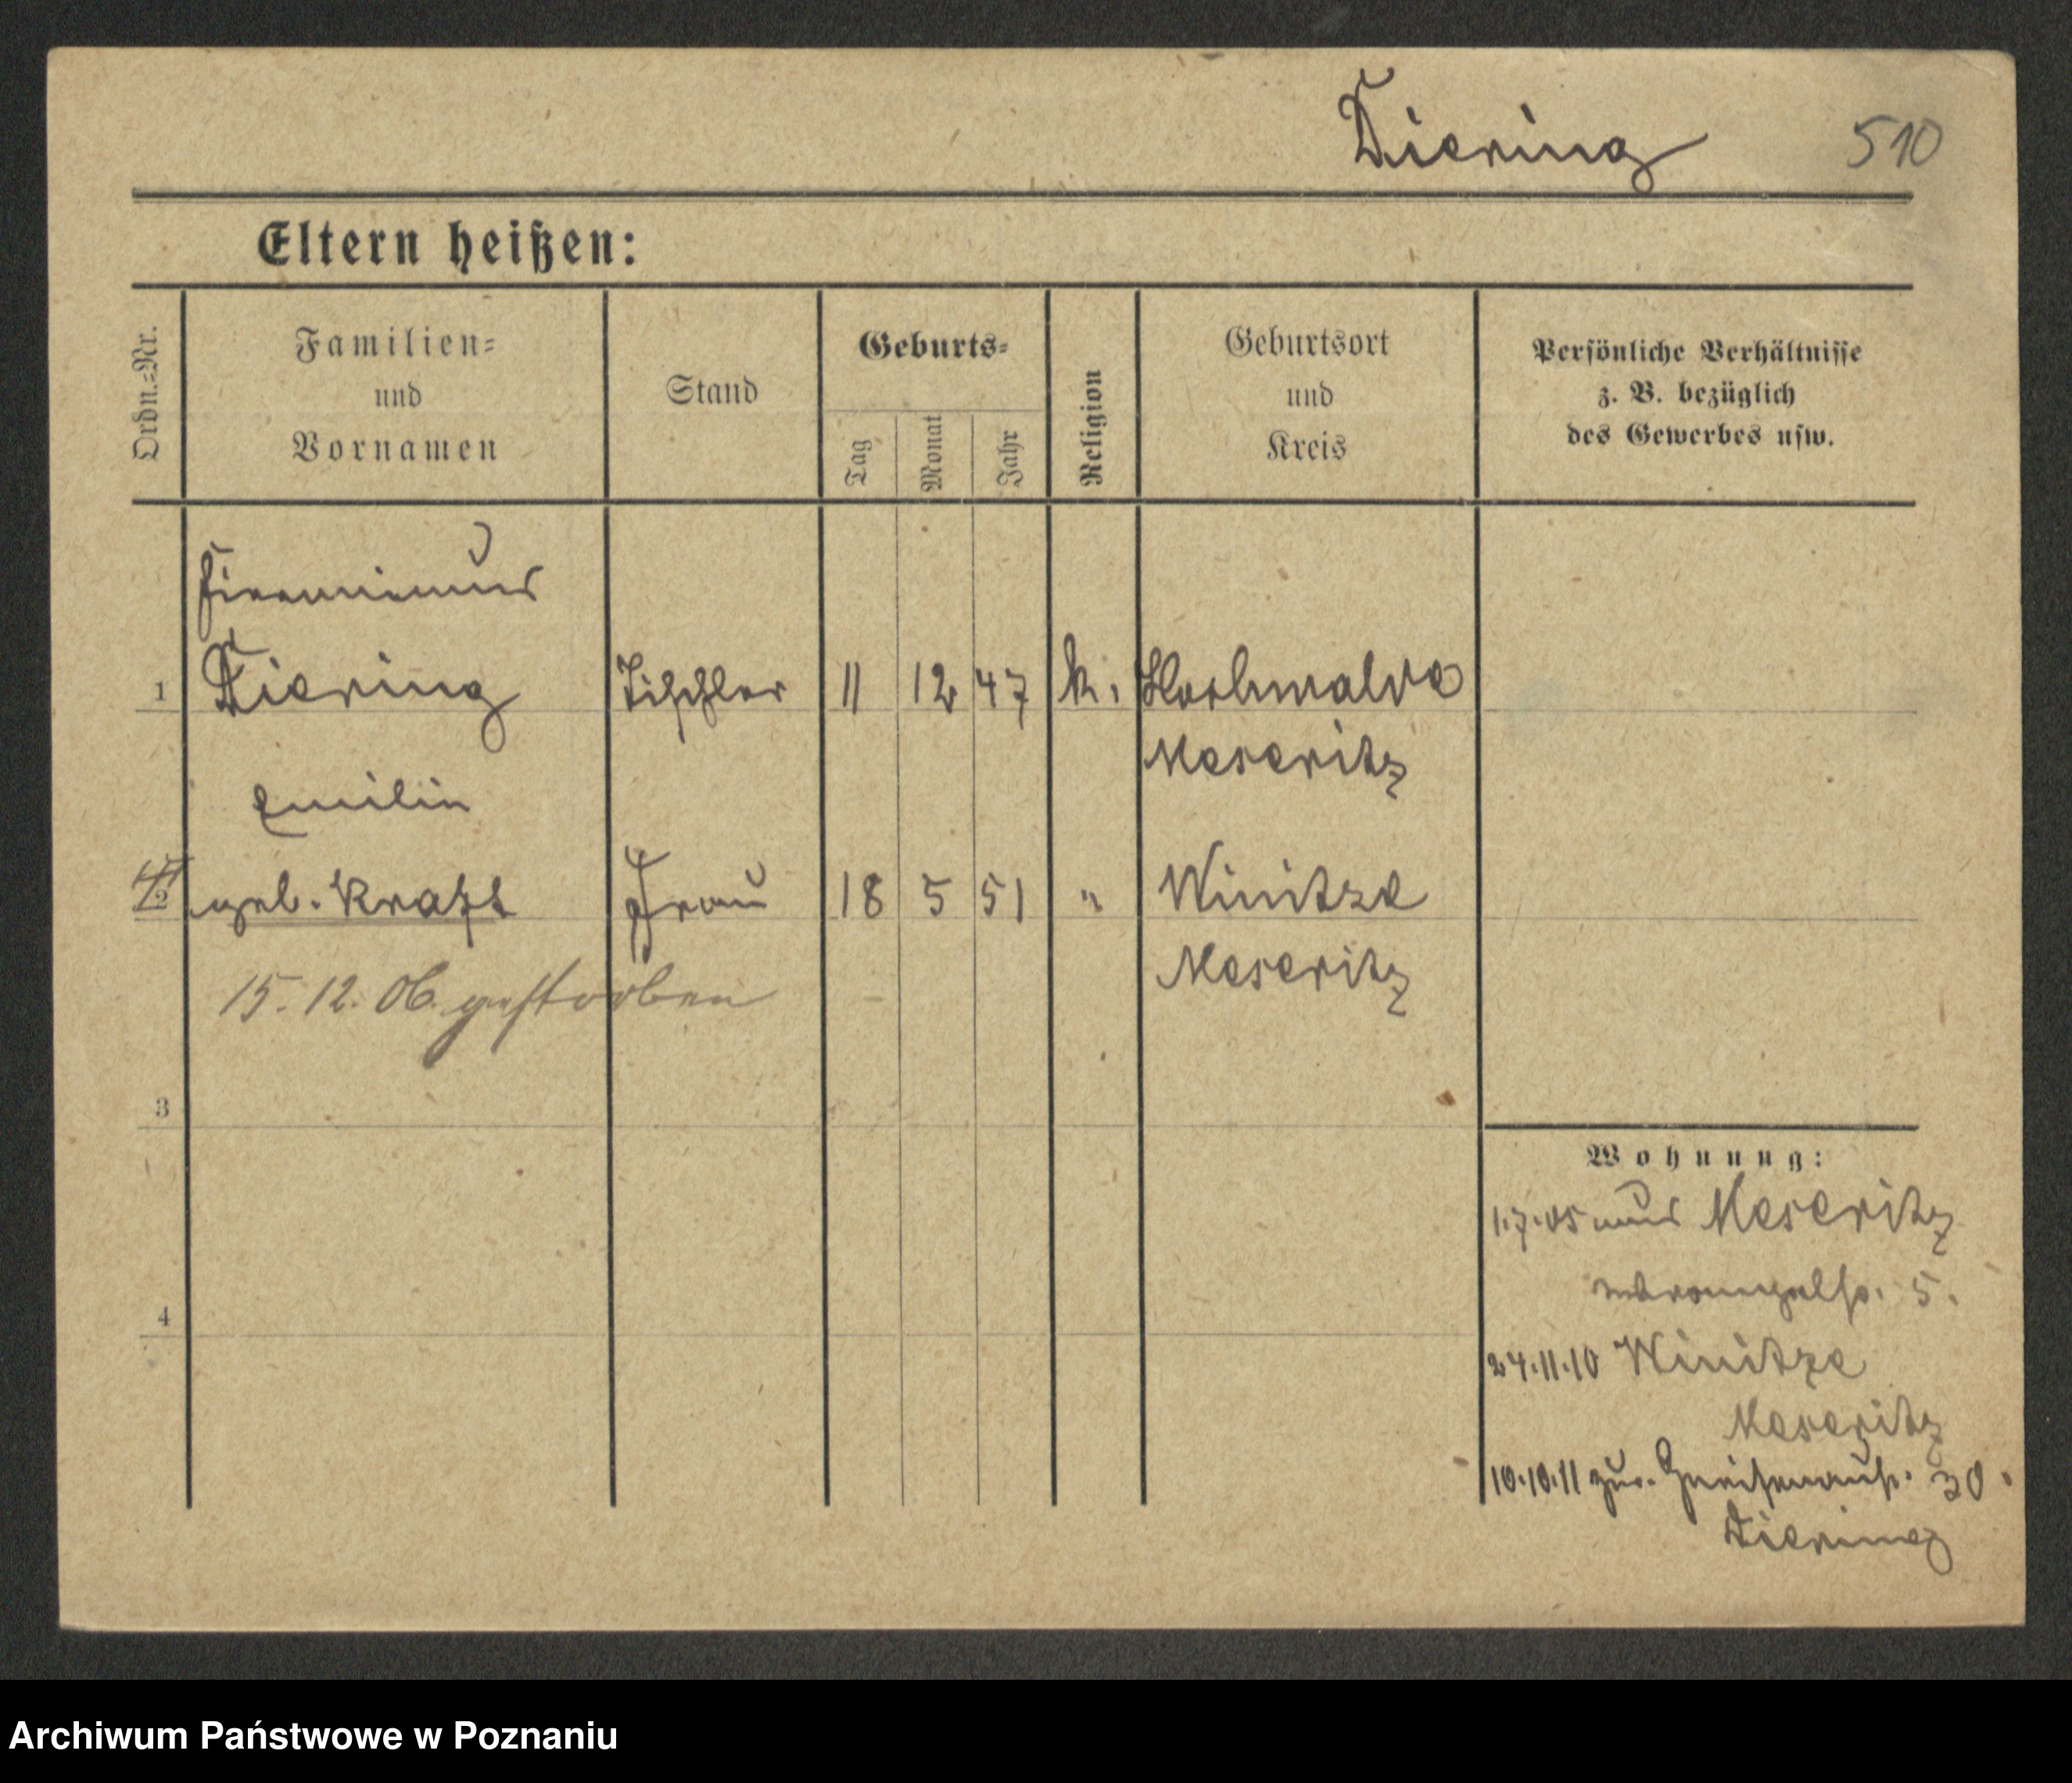 Diering 510
Eltern heißen:
Ordn.=Nr.
Familien=
und
Vornamen
Stand
Geburts=
Tag
Monat
Jahr
Religion
Geburtsort
und
Kreis
Persönliche Verhältnisse
z. B. bezüglich
des Gewerbes usw.
1 Diering Tischler 11 12 47 k.
Meseritz
Emilie
2 geb. Kraft Frau 18 5 51 " Winitze
15. 12. 06. gestorben Meseritz
3
Wohnung:
1.7.05 aus Meseritz
5.
4
24.11.10 Winitze
Meseritz
10.10.11 zur. Gneisenaustr. 30.
Diering
Archiwum Państwowe w Poznaniu